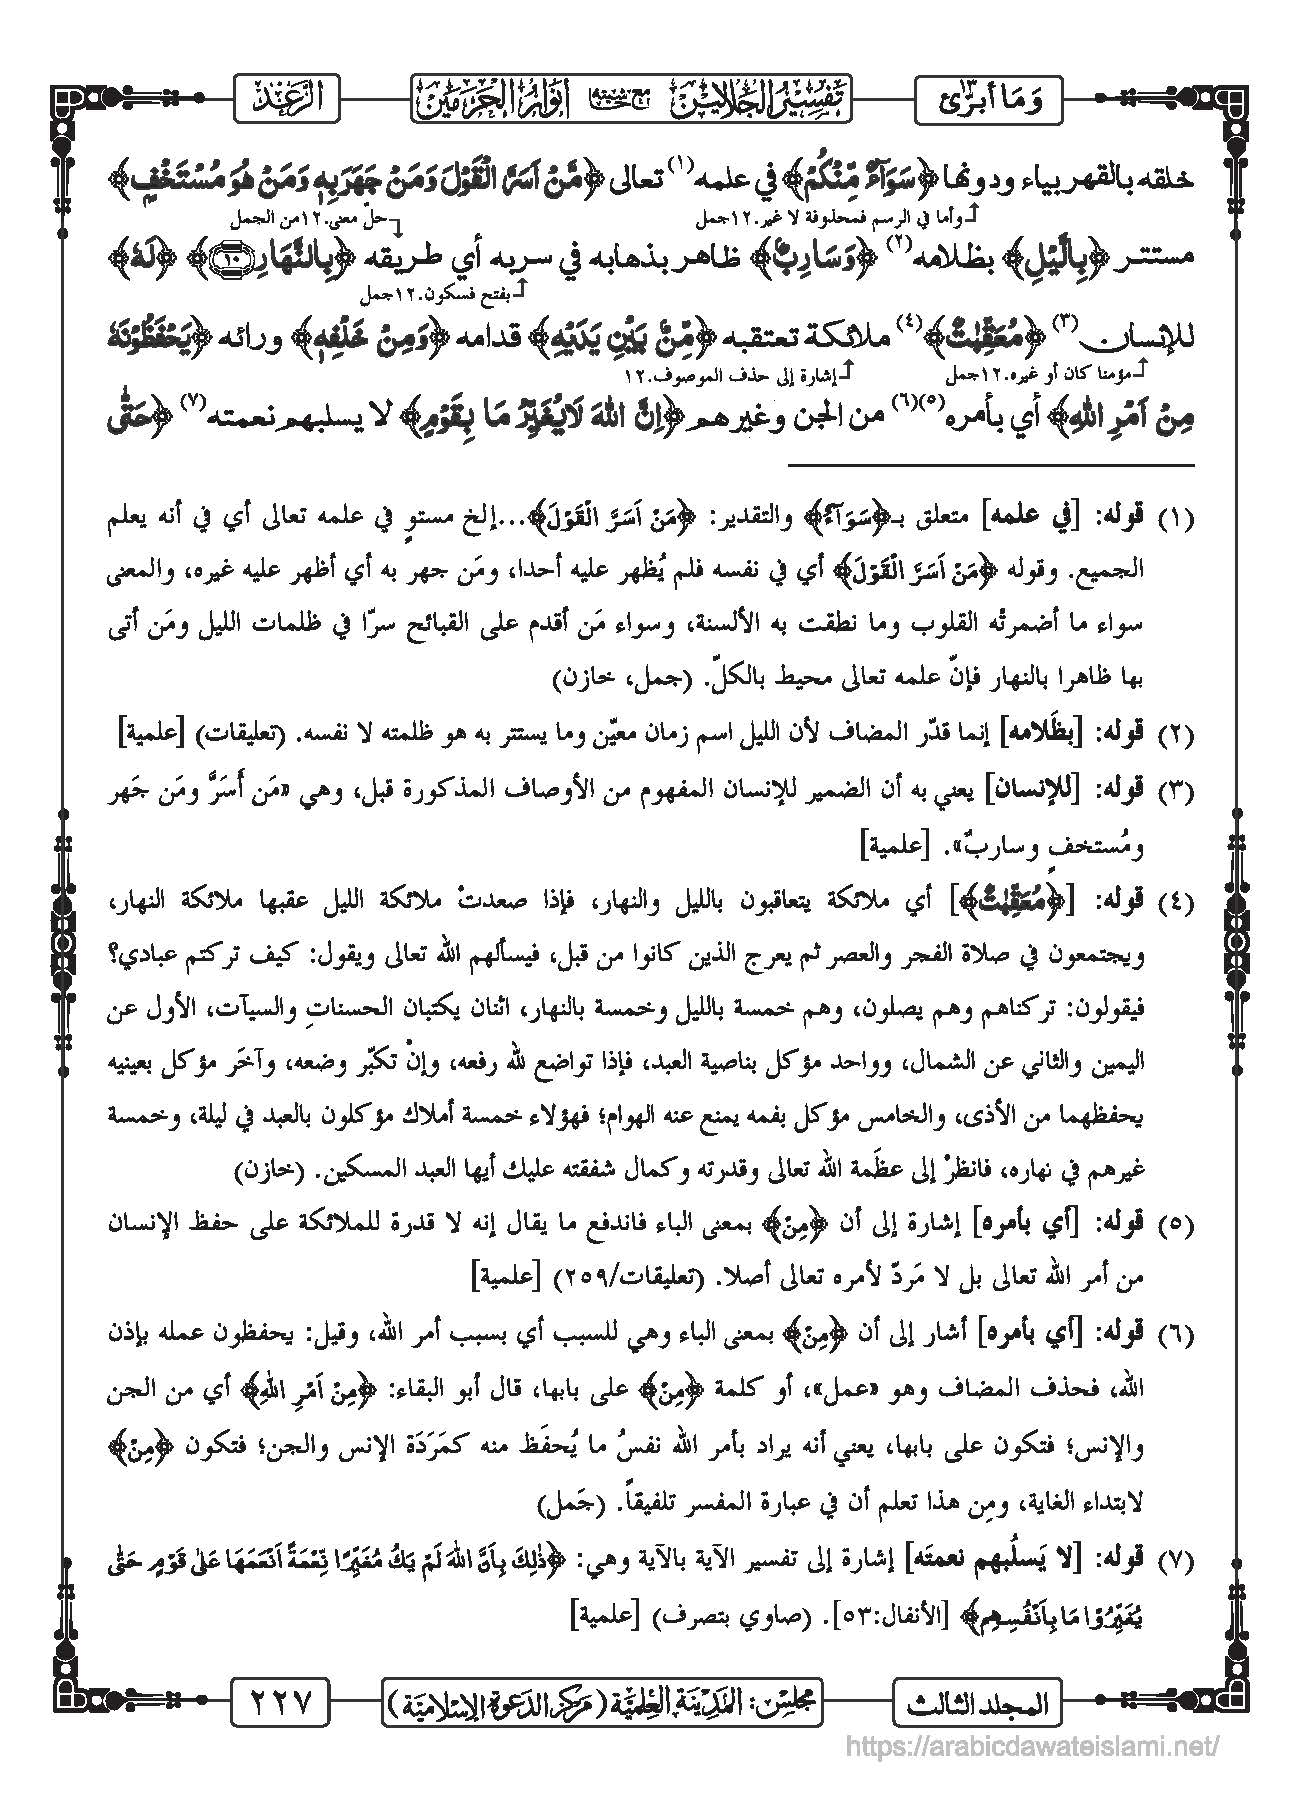 وَمَا أبرّئ ١٣
تفسير الجلالين مع حاشية أنوار الحرمين
الرّعْد
خلقه بالقهر بياء ودونها ﴿سَوَآءٌ مِّنْكُمْ﴾ في علمه(١) تعالى ﴿مَّنْ اَسَرَّ الْقَوْلَ وَمَنْ جَهَرَ بِهٖ وَمَنْ هُوَ مُسْتَخْفٍۭ﴾
وأما في الرسم فمحذوفة لا غير.١٢جمل
حلّ معنى.١٢من الجمل
مستتر ﴿بِالَّيْلِ﴾ بظلامه(٢) ﴿وَسَارِبٌۢ﴾ ظاهر بذهابه في سربه أي طريقه ﴿بِالنَّهَارِ ١٠﴾ ﴿لَهٗ﴾
بفتح فسكون.١٢جمل
للإنسان(٣) ﴿مُعَقِّبٰتٌ﴾(٤) ملائكة تعتقبه ﴿مِّنْۢ بَيْنِ يَدَيْهِ﴾ قدامه ﴿وَمِنْ خَلْفِهٖ﴾ ورائه ﴿يَحْفَظُوْنَهٗ
مؤمنا كان أو غيره.١٢جمل
إشارة إلى حذف الموصوف.١٢
مِنْ اَمْرِ اللهِ﴾ أي بأمره(٥)(٦) من الجن وغيرهم ﴿اِنَّ اللهَ لَايُغَيِّرُ مَا بِقَوْمٍ﴾ لا يسلبهم نعمته(٧) ﴿حَتّٰى
(١) قوله: [في علمه] متعلق بـ﴿سَوَآءٌ﴾ والتقدير: ﴿مَنْ اَسَرَّ الْقَوْلَ﴾...إلخ مستوٍ في علمه تعالى أي في أنه يعلم
الجميع. وقوله ﴿مَنْ اَسَرَّ الْقَوْلَ﴾ أي في نفسه فلم يُظهر عليه أحدا، ومَن جهر به أي أظهر عليه غيره، والمعنى
سواء ما أضمرتْه القلوب وما نطقت به الألسنة، وسواء مَن أقدم على القبائح سرّا في ظلمات الليل ومَن أتى
بها ظاهرا بالنهار فإنّ علمه تعالى محيط بالكلّ. (جمل، خازن)
(٢) قوله: [بظَلامه] إنما قدّر المضاف لأن الليل اسم زمان معيّن وما يستتر به هو ظلمته لا نفسه. (تعليقات) [علمية]
(٣) قوله: [للإنسان] يعني به أن الضمير للإنسان المفهوم من الأوصاف المذكورة قبل، وهي «مَن أَسَرَّ ومَن جَهر
ومُستخفٍ وساربٌ». [علمية]
(٤) قوله: [﴿مُعَقِّبٰتٌ﴾] أي ملائكة يتعاقبون بالليل والنهار، فإذا صعدتْ ملائكة الليل عقبها ملائكة النهار،
ويجتمعون في صلاة الفجر والعصر ثم يعرج الذين كانوا من قبل، فيسألهم الله تعالى ويقول: كيف تركتم عبادي؟
فيقولون: تركناهم وهم يصلون، وهم خمسة بالليل وخمسة بالنهار، اثنان يكتبان الحسناتِ والسيآت، الأول عن
اليمين والثاني عن الشمال، وواحد مؤكل بناصية العبد، فإذا تواضع لله رفعه، وإنْ تكبّر وضعه، وآخَر مؤكل بعينيه
يحفظهما من الأذى، والخامس مؤكل بفمه يمنع عنه الهوام؛ فهؤلاء خمسة أملاك مؤكلون بالعبد في ليلة، وخمسة
غيرهم في نهاره، فانظرْ إلى عظَمة الله تعالى وقدرته وكمال شفقته عليك أيها العبد المسكين. (خازن)
(٥) قوله: [أي بأمره] إشارة إلى أن ﴿مِنْ﴾ بمعنى الباء فاندفع ما يقال إنه لا قدرة للملائكة على حفظ الإنسان
من أمر الله تعالى بل لا مَردّ لأمره تعالى أصلا. (تعليقات/٢٥٩) [علمية]
(٦) قوله: [أي بأمره] أشار إلى أن ﴿مِنْ﴾ بمعنى الباء وهي للسبب أي بسبب أمر الله، وقيل: يحفظون عمله بإذن
الله، فحذف المضاف وهو «عمل»، أو كلمة ﴿مِنْ﴾ على بابها، قال أبو البقاء: ﴿مِنْ اَمْرِ اللهِ﴾ أي من الجن
والإنس؛ فتكون على بابها، يعني أنه يراد بأمر الله نفسُ ما يُحفَظ منه كمَرَدَة الإنس والجن؛ فتكون ﴿مِنْ﴾
لابتداء الغاية، ومِن هذا تعلم أن في عبارة المفسر تلفيقاً. (جَمل)
(٧) قوله: [لا يَسلُبهم نعمتَه] إشارة إلى تفسير الآية بالآية وهي: ﴿ذٰلِكَ بِاَنَّ اللهَ لَمْ يَكُ مُغَيِّرًا نِّعْمَةً اَنْعَمَهَا عَلٰى قَوْمٍ حَتّٰى
يُغَيِّرُوْا مَا بِاَنْفُسِهِمْ﴾ [الأنفال:٥٣]. (صاوي بتصرف) [علمية]
المجلد الثالث
مجلس: المدينة العلمية (مركز الدعوة الإسلامية)
٢٢٧
https://arabicdawateislami.net/